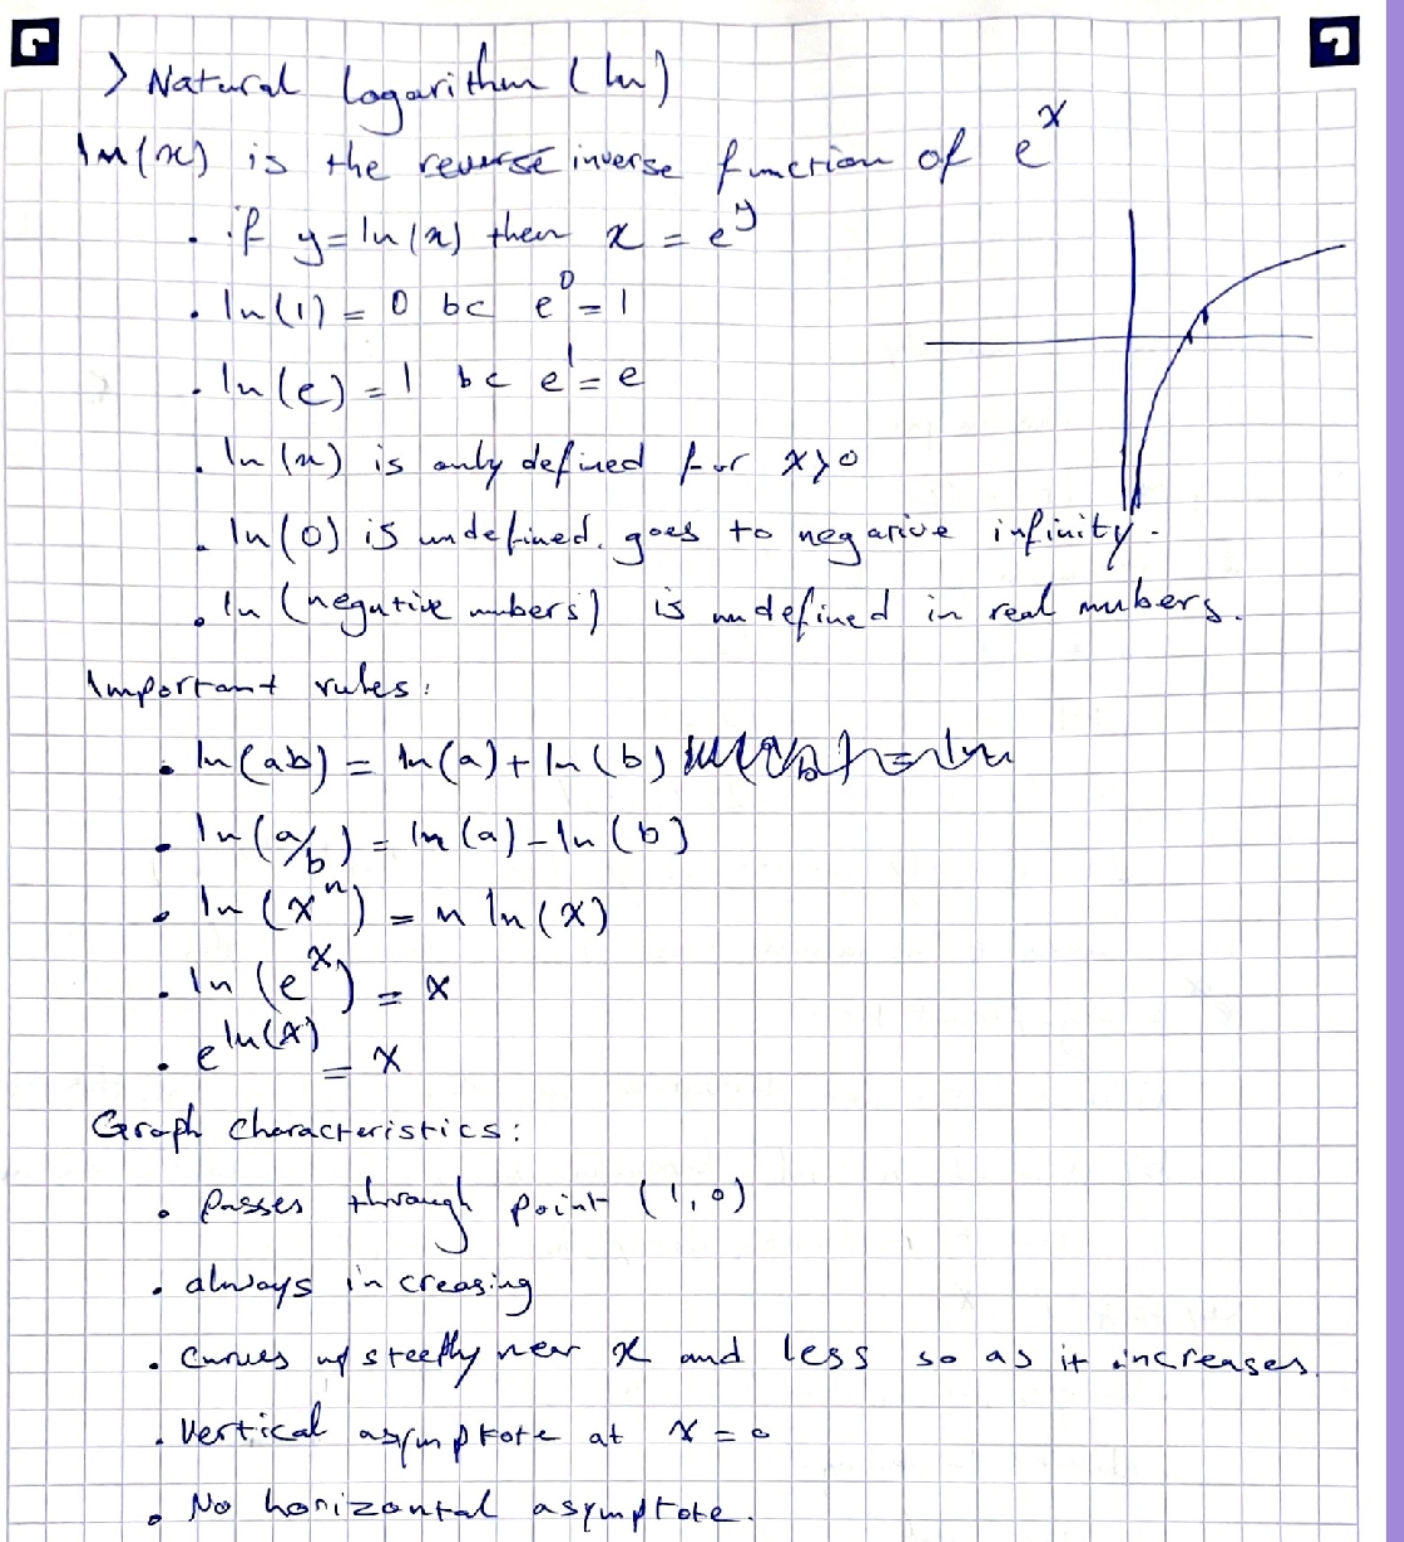 > Natural logarithm (ln)
ln(x) is the reverse inverse function of e^x
. if y=ln(x) then x = e^y
. ln(1) = 0 bc e^0 = 1
. ln(e) = 1 bc e^1 = e
. ln(x) is only defined for x>0
. ln(0) is undefined. goes to negative infinity.
. ln (negative numbers) is undefined in real numbers.
Important rules:
• ln(ab) = ln(a) + ln(b)
• ln(a/b) = ln(a) - ln(b)
• ln(x^n) = n ln(x)
. ln(e^x) = x
. e^ln(x) = x
Graph characteristics:
• Passes through point (1,0)
. always increasing
. Curves up steeply near x and less so as it increases.
. Vertical asymptote at x = 0
• No horizontal asymptote.